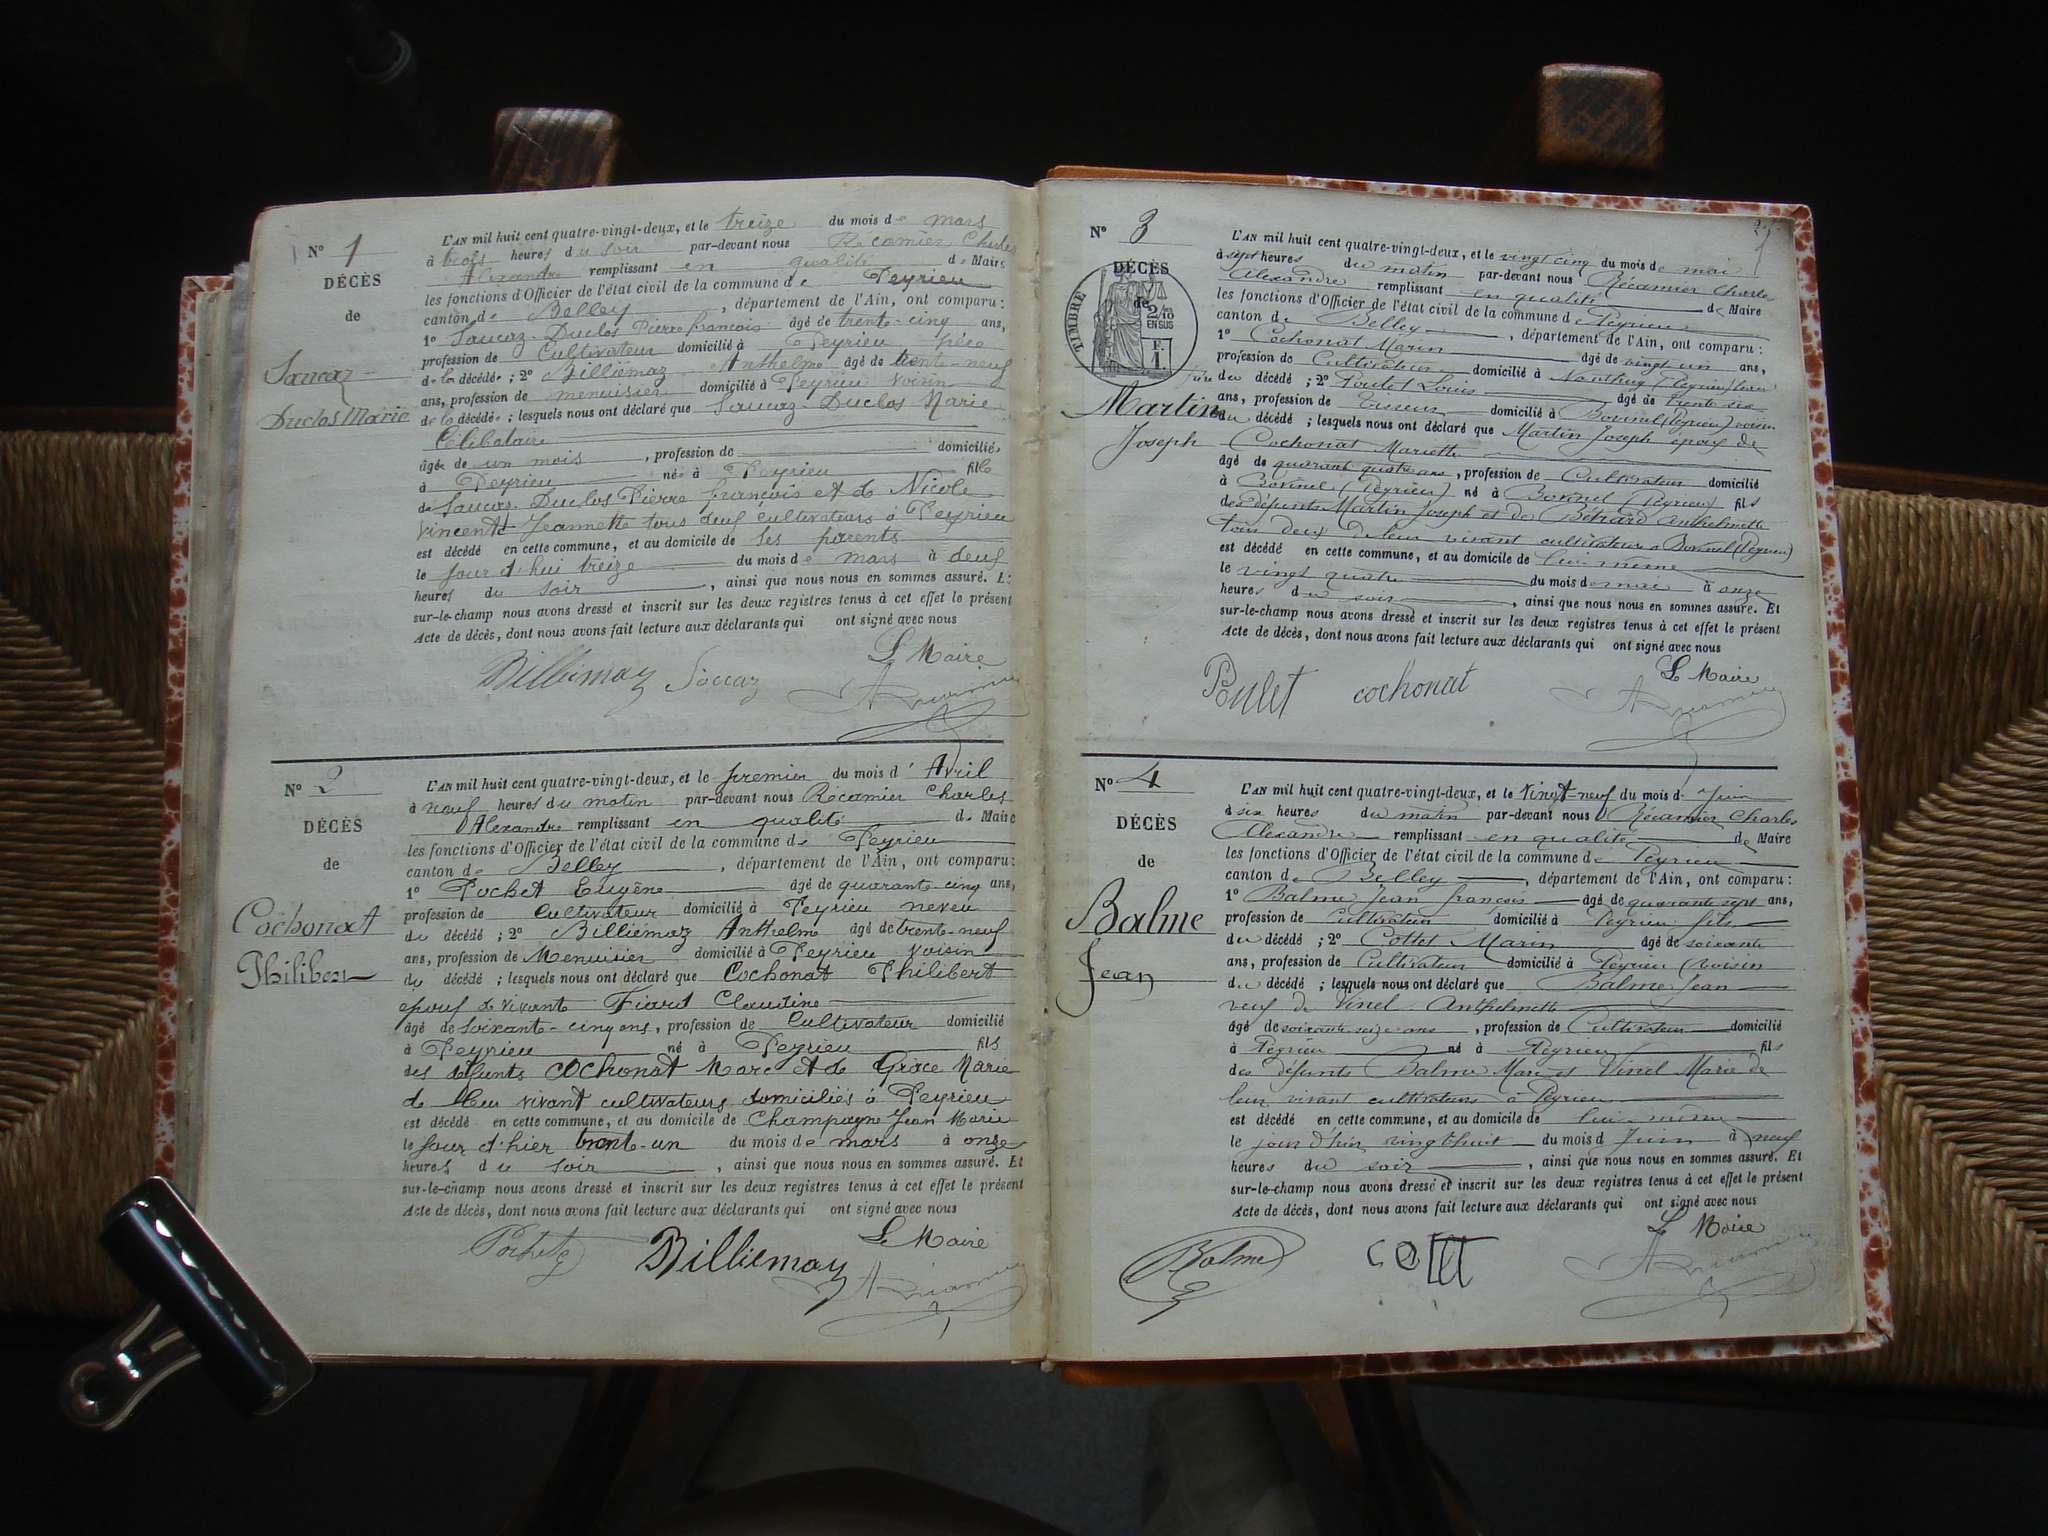 N° 1
DÉCÈS
de
Saucaz-
Duclos Marie
L'AN mil huit cent quatre-vingt-deux, et le treize du mois de mars
à trois heures du soir par-devant nous Récamier Charles
Alexandre remplissant en qualité de Maire
les fonctions d'Officier de l'état civil de la commune de Peyrieu
canton de Belley, département de l'Ain, ont comparu:
1° Saucaz-Duclos Pierre françois âgé de trente-cinq ans,
profession de Cultivateur domicilié à Peyrieu père
de la décédée; 2° Billiémaz Anthelme âgé de trente-neuf
ans, profession de menuisier domicilié à Peyrieu voisin
de la décédée; lesquels nous ont déclaré que Saucaz-Duclos Marie
Célibataire
âgée de un mois, profession de domiciliée
à Peyrieu née à Peyrieu fille
de Saucaz-Duclos Pierre françois et de Nicole
Vincente Jeannette tous deux cultivateurs à Peyrieu
est décédé en cette commune, et au domicile de ses parents
le jour d'hui treize du mois de mars à deux
heures du soir, ainsi que nous nous en sommes assuré. Et
sur-le-champ nous avons dressé et inscrit sur les deux registres tenus à cet effet le présent
Acte de décès, dont nous avons fait lecture aux déclarants qui ont signé avec nous
Le Maire
Billiemaz Soccaz
N° 2
DÉCÈS
de
Cochonat
Philibert
L'AN mil huit cent quatre-vingt-deux, et le premier du mois d'Avril
à neuf heures du matin par-devant nous Récamier Charles
Alexandre remplissant en qualité de Maire
les fonctions d'Officier de l'état civil de la commune de Peyrieu
canton de Belley, département de l'Ain, ont comparu:
1° Pochet Eugène âgé de quarante-cinq ans,
profession de Cultivateur domicilié à Peyrieu neveu
du décédé; 2° Billiémaz Anthelme âgé de trente-neuf
ans, profession de Menuisier domicilié à Peyrieu voisin
du décédé; lesquels nous ont déclaré que Cochonat Philibert
epoux de vivante Fiard Claudine
âgé de soixante-cinq ans, profession de Cultivateur domicilié
à Peyrieu né à Peyrieu fils
des défunts Cochonat Marc et de Grâce Marie
de leur vivant cultivateurs domiciliés à Peyrieu
est décédé en cette commune, et au domicile de Champagne Jean Marie
le jour d'hier trente-un du mois de mars à onze
heures du soir, ainsi que nous nous en sommes assuré. Et
sur-le-champ nous avons dressé et inscrit sur les deux registres tenus à cet effet le présent
Acte de décès, dont nous avons fait lecture aux déclarants qui ont signé avec nous
Le Maire
Billiemaz
N° 3
DÉCÈS
de
TIMBRE
2/10
EN SUS
F.
1.
Martin
Joseph
L'AN mil huit cent quatre-vingt-deux, et le vingt cinq du mois de mai
à sept heures du matin par-devant nous Récamier Charles
Alexandre remplissant en qualité de Maire
les fonctions d'Officier de l'état civil de la commune de Peyrieu
canton de Belley, département de l'Ain, ont comparu:
1° Cochonat Marin âgé de vingt un ans,
profession de Cultivateur domicilié à Nanthuy (Peyrieu)
du décédé; 2° Poulet Louis âgé de trente six
ans, profession de Tisseur domicilié à Bovinel (Peyrieu) voisin
du décédé; lesquels nous ont déclaré que Martin Joseph epoux de
Cochonat Mariette
âgé de quarant quatre ans, profession de Cultivateur domicilié
à Bovinel (Peyrieu) né à Bovinel (Peyrieu) fils
des défunts Martin Joseph et de Bérard Anthelmette
tous deux de leur vivant cultivateur à Bovinel (Peyrieu)
est décédé en cette commune, et au domicile de lui-même
le vingt quatre du mois de mai à onze
heures du soir, ainsi que nous nous en sommes assuré. Et
sur-le-champ nous avons dressé et inscrit sur les deux registres tenus à cet effet le présent
Acte de décès, dont nous avons fait lecture aux déclarants qui ont signé avec nous
Le Maire
Poulet cochonat
N° 4
DÉCÈS
de
Balme
Jean
L'AN mil huit cent quatre-vingt-deux, et le Vingt-neuf du mois de Juin
à six heures du matin par-devant nous Récamier Charles
Alexandre remplissant en qualité de Maire
les fonctions d'Officier de l'état civil de la commune de Peyrieu
canton de Belley, département de l'Ain, ont comparu:
1° Balme Jean françois âgé de quarante sept ans,
profession de Cultivateur domicilié à Peyrieu fils
du décédé; 2° Cottet Marin âgé de soixante
ans, profession de Cultivateur domicilié à Peyrieu voisin
du décédé; lesquels nous ont déclaré que Balme Jean
veuf de Vinel Anthelmette
âgé de soixante seize ans, profession de Cultivateur domicilié
à Peyrieu né à Peyrieu fils
des défunts Balme Marc et Vinel Marie de
leur vivant cultivateurs à Peyrieu
est décédé en cette commune, et au domicile de lui-même
le jour d'hier vingt huit du mois de Juin à neuf
heures du soir, ainsi que nous nous en sommes assuré. Et
sur-le-champ nous avons dressé et inscrit sur les deux registres tenus à cet effet le présent
Acte de décès, dont nous avons fait lecture aux déclarants qui ont signé avec nous
Le Maire
Balme cottet